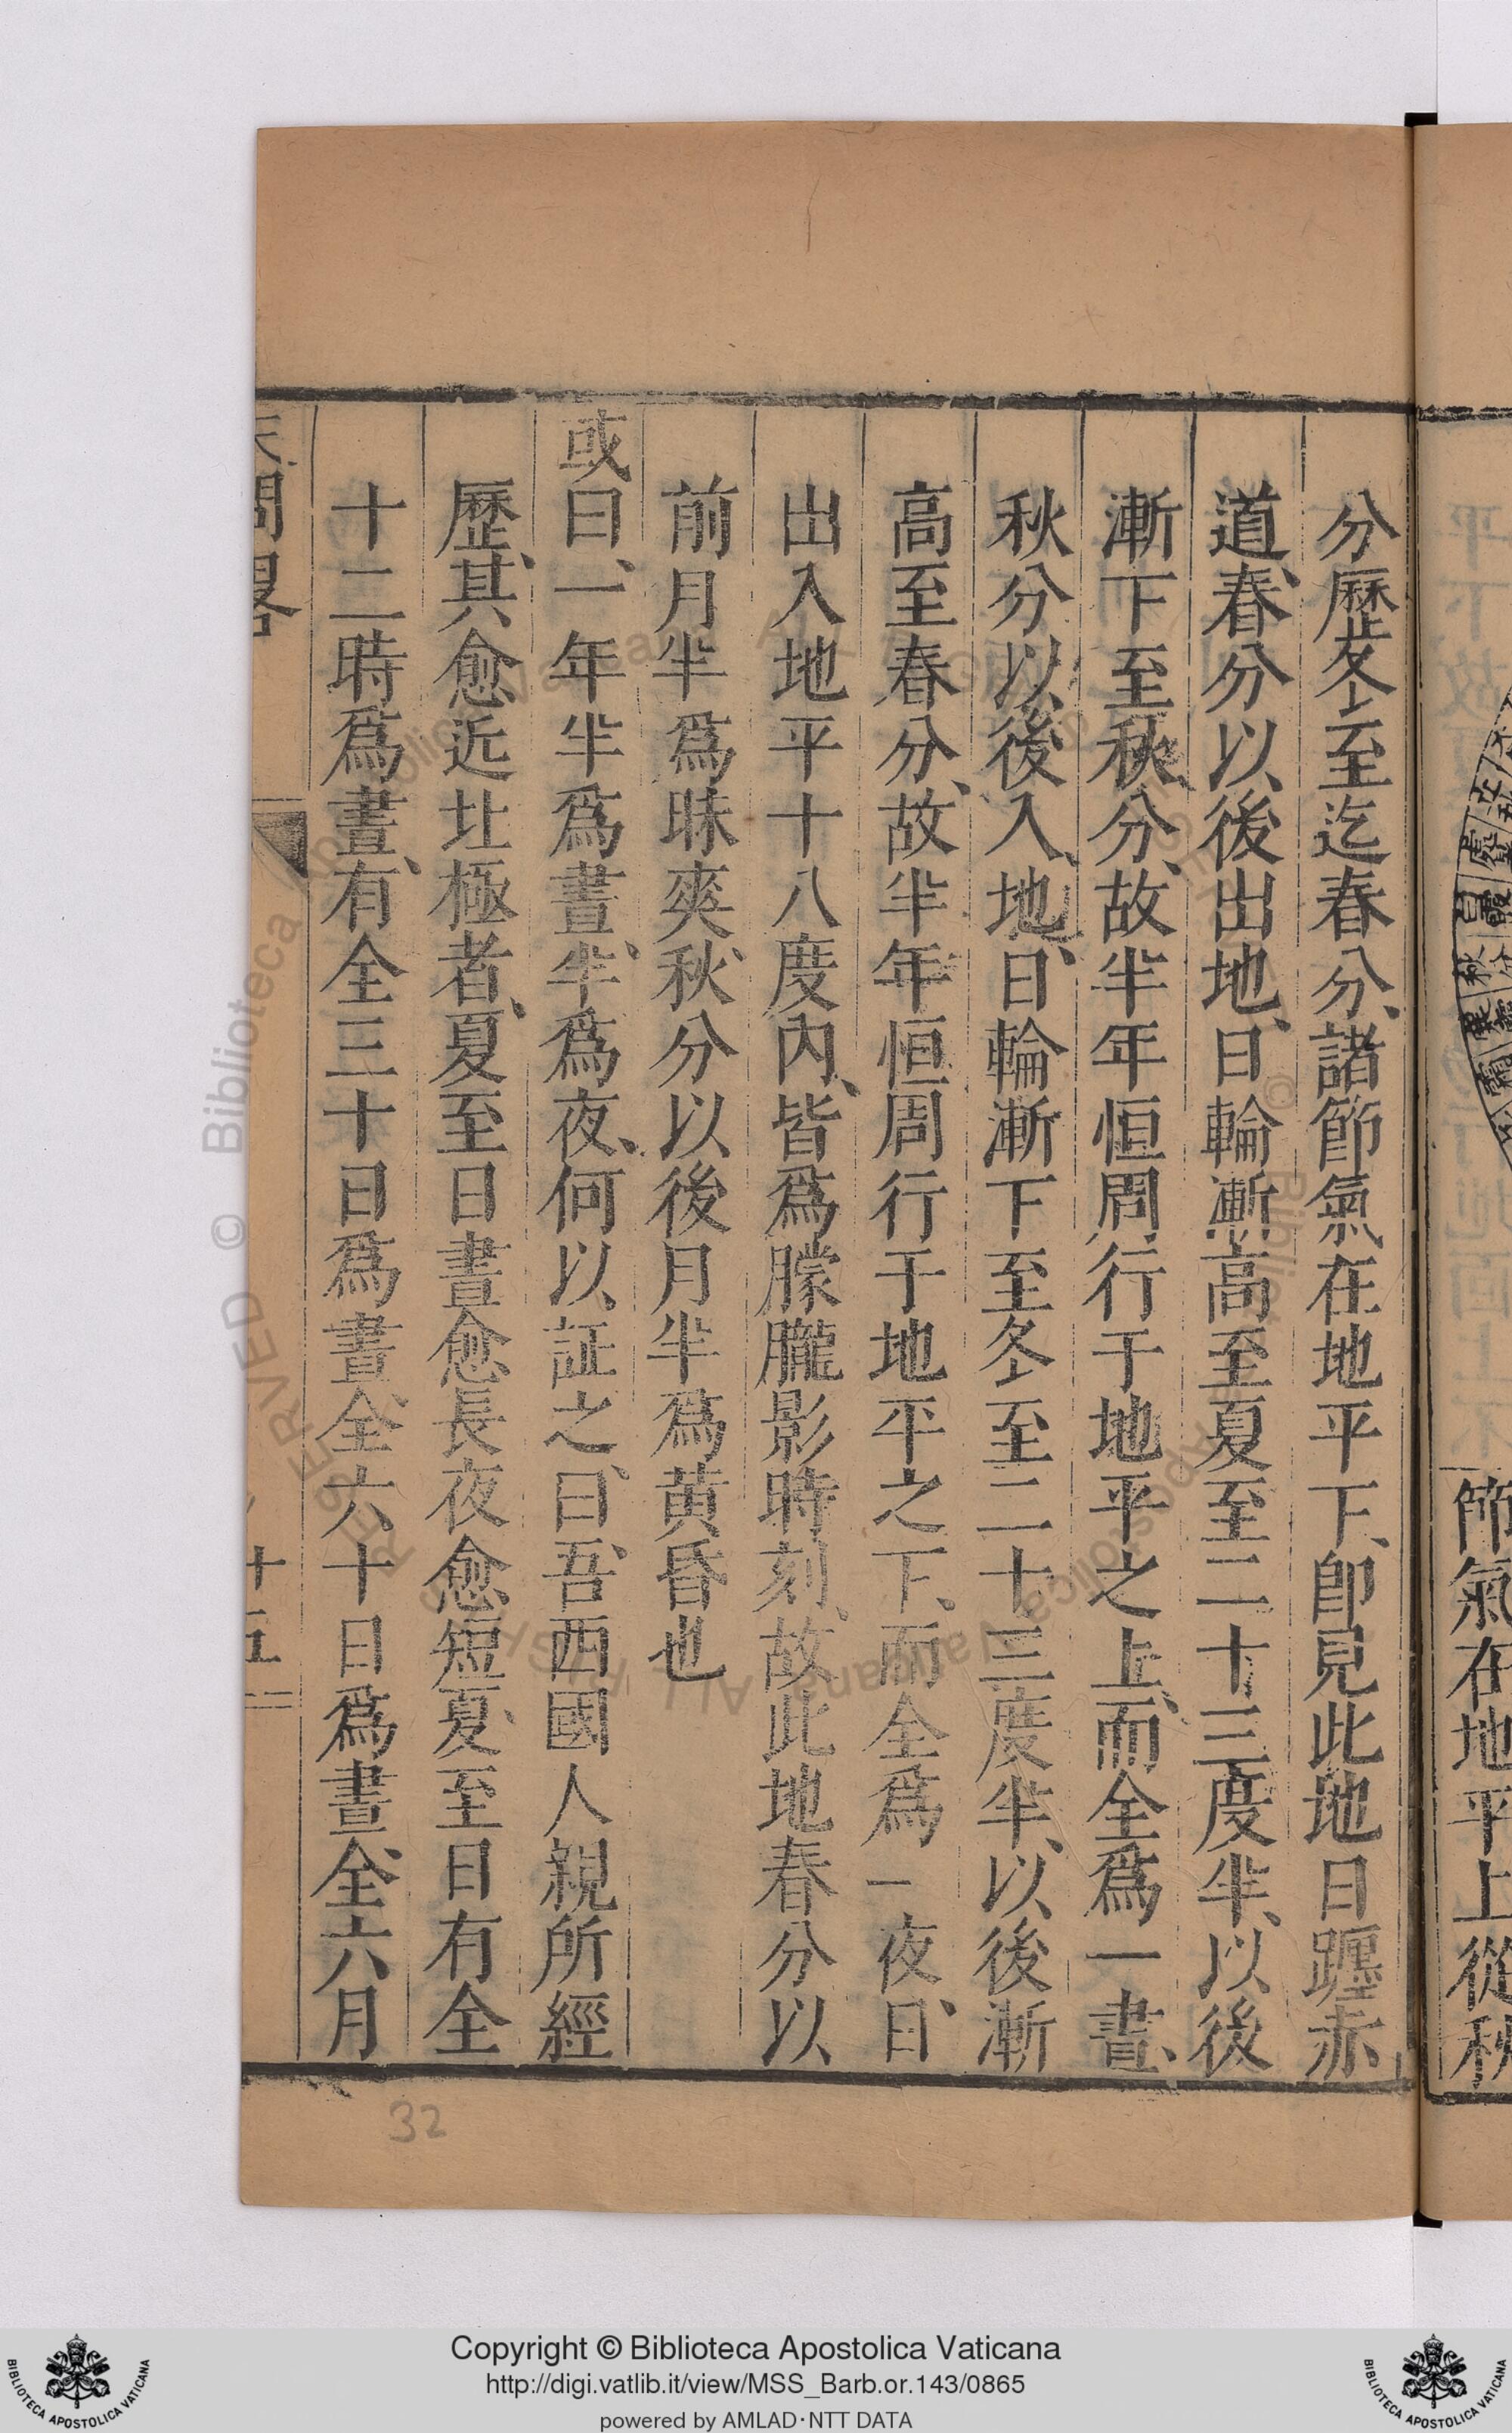 節氣在地平上從秋
分歷冬至迄春分、諸節氣在地平下、卽見此地日躔赤
道、春分以後出地、日輪漸高至夏至二十三度半、以後
漸下至秋分、故半年恒周行于地平之上、而全爲一晝、
秋分以後入地、日輪漸下至冬至二十三度半、以後漸
高至春分、故半年恒周行于地平之下、而全爲一夜、日
出入地平十八度內、皆爲朦朧影時刻、故此地春分以
前月半爲昧爽、秋分以後月半爲黃昏也
或曰、一年半爲晝、半爲夜、何以証之、曰、吾西國人親所經
歷、其愈近北極者、夏至日晝愈長夜愈短、夏至日有全
十二時爲晝、有全三十日爲晝、全六十日爲晝、全六月
天問畧
十五
32
Copyright © Biblioteca Apostolica Vaticana
http://digi.vatlib.it/view/MSS_Barb.or.143/0865
powered by AMLAD·NTT DATA